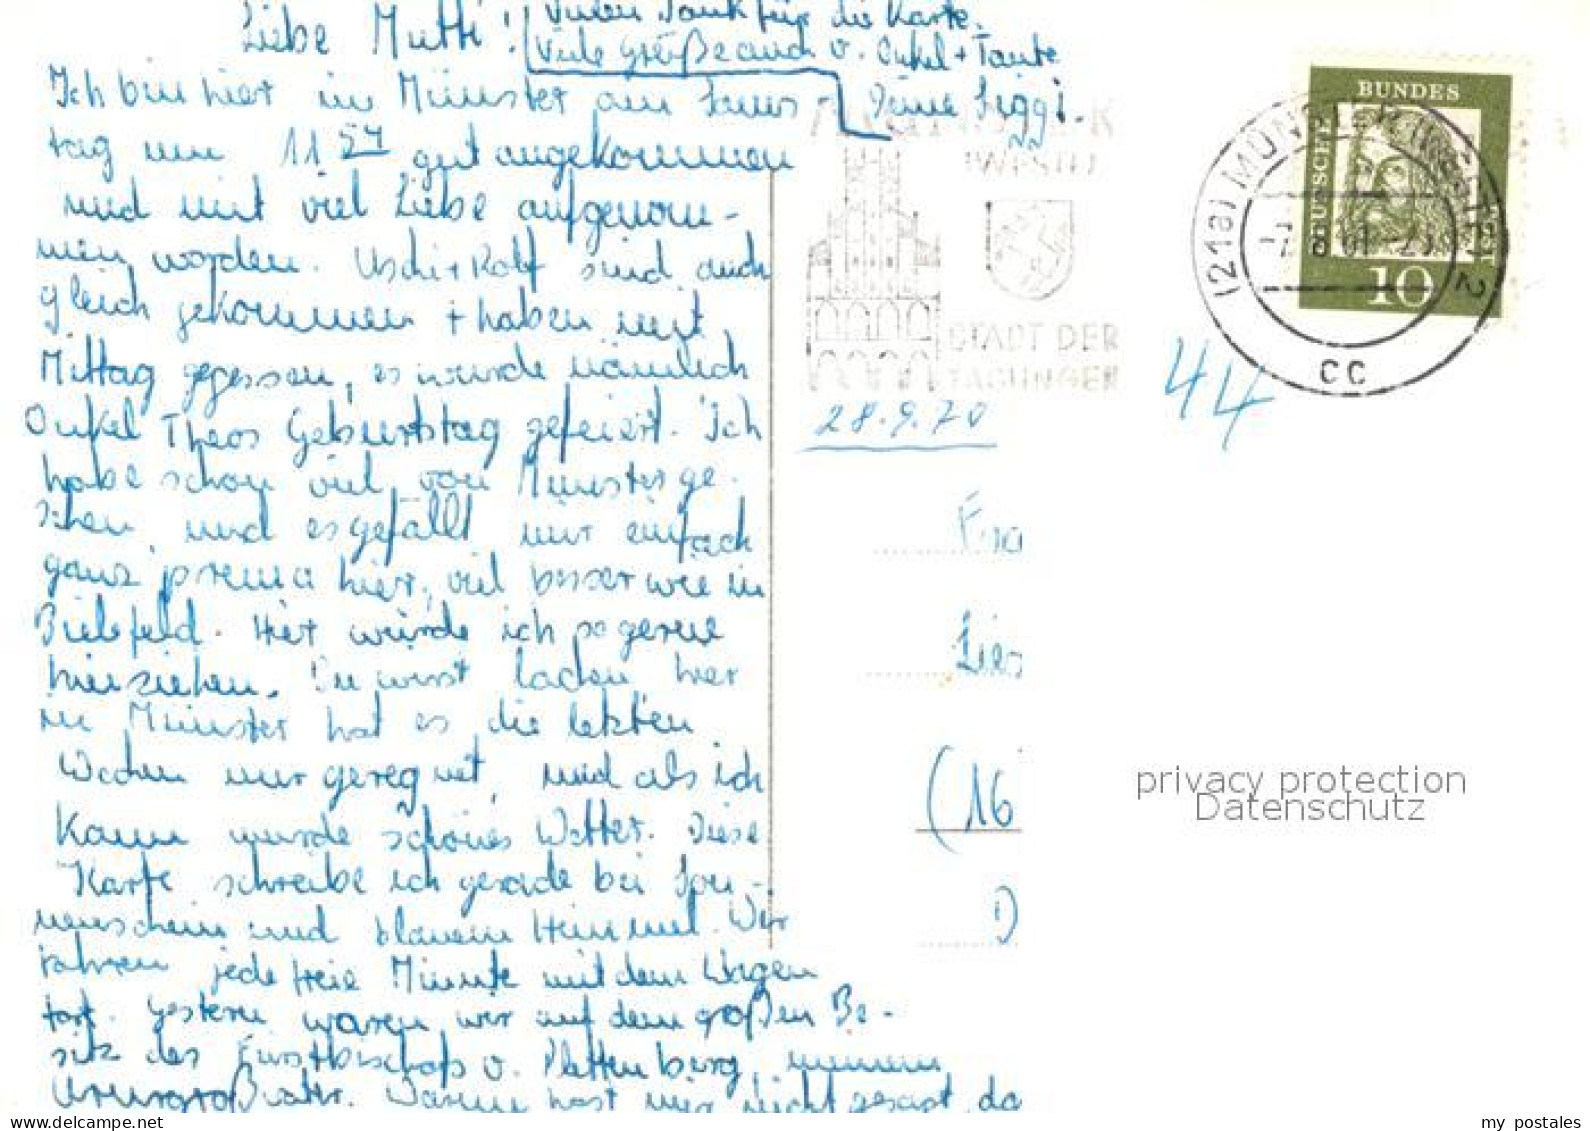 Liebe Mutti!
Vielen Dank für die Karte.
Viele Grüße auch v. Onkel + Tante
Deine Siggi.
Ich bin hier in Münster am Sams-
tag um 11 27 gut angekommen
und mit viel Liebe aufgenom-
men worden. Uschi + Rolf sind auch
gleich gekommen + haben mit
Mittag gegessen, es wurde nämlich
Onkel Theos Geburtstag gefeiert. Ich
habe schon viel von Münster ge-
sehen und es gefällt mir einfach
ganz prema hier, viel besser wie in
Bielefeld. Hier würde ich so gerne
hinziehen. Du wirst lachen hier
in Münster hat es die letzten
Wochen nur geregnet, und als ich
kam wurde schönes Wetter. Diese
Karte schreibe ich gerade bei Son-
nenschein und blauem Himmel. Wir
fahren jede freie Minute mit dem Wagen
fort. Gestern waren wir auf dem großen Be-
sitz des Fürstbischofs v. Plettenberg, meinem
Ururgroßvater. Warum hast mir nicht gesagt, da
(WESTF)
STADT DER
TAGUNGEN
28.9.70
44
(21a) MÜNSTER (WESTF) 2
cc
DEUTSCHE
BUNDES
10
Frau
Lies
(16
D
privacy protection
Datenschutz
www.delcampe.net
my_postales